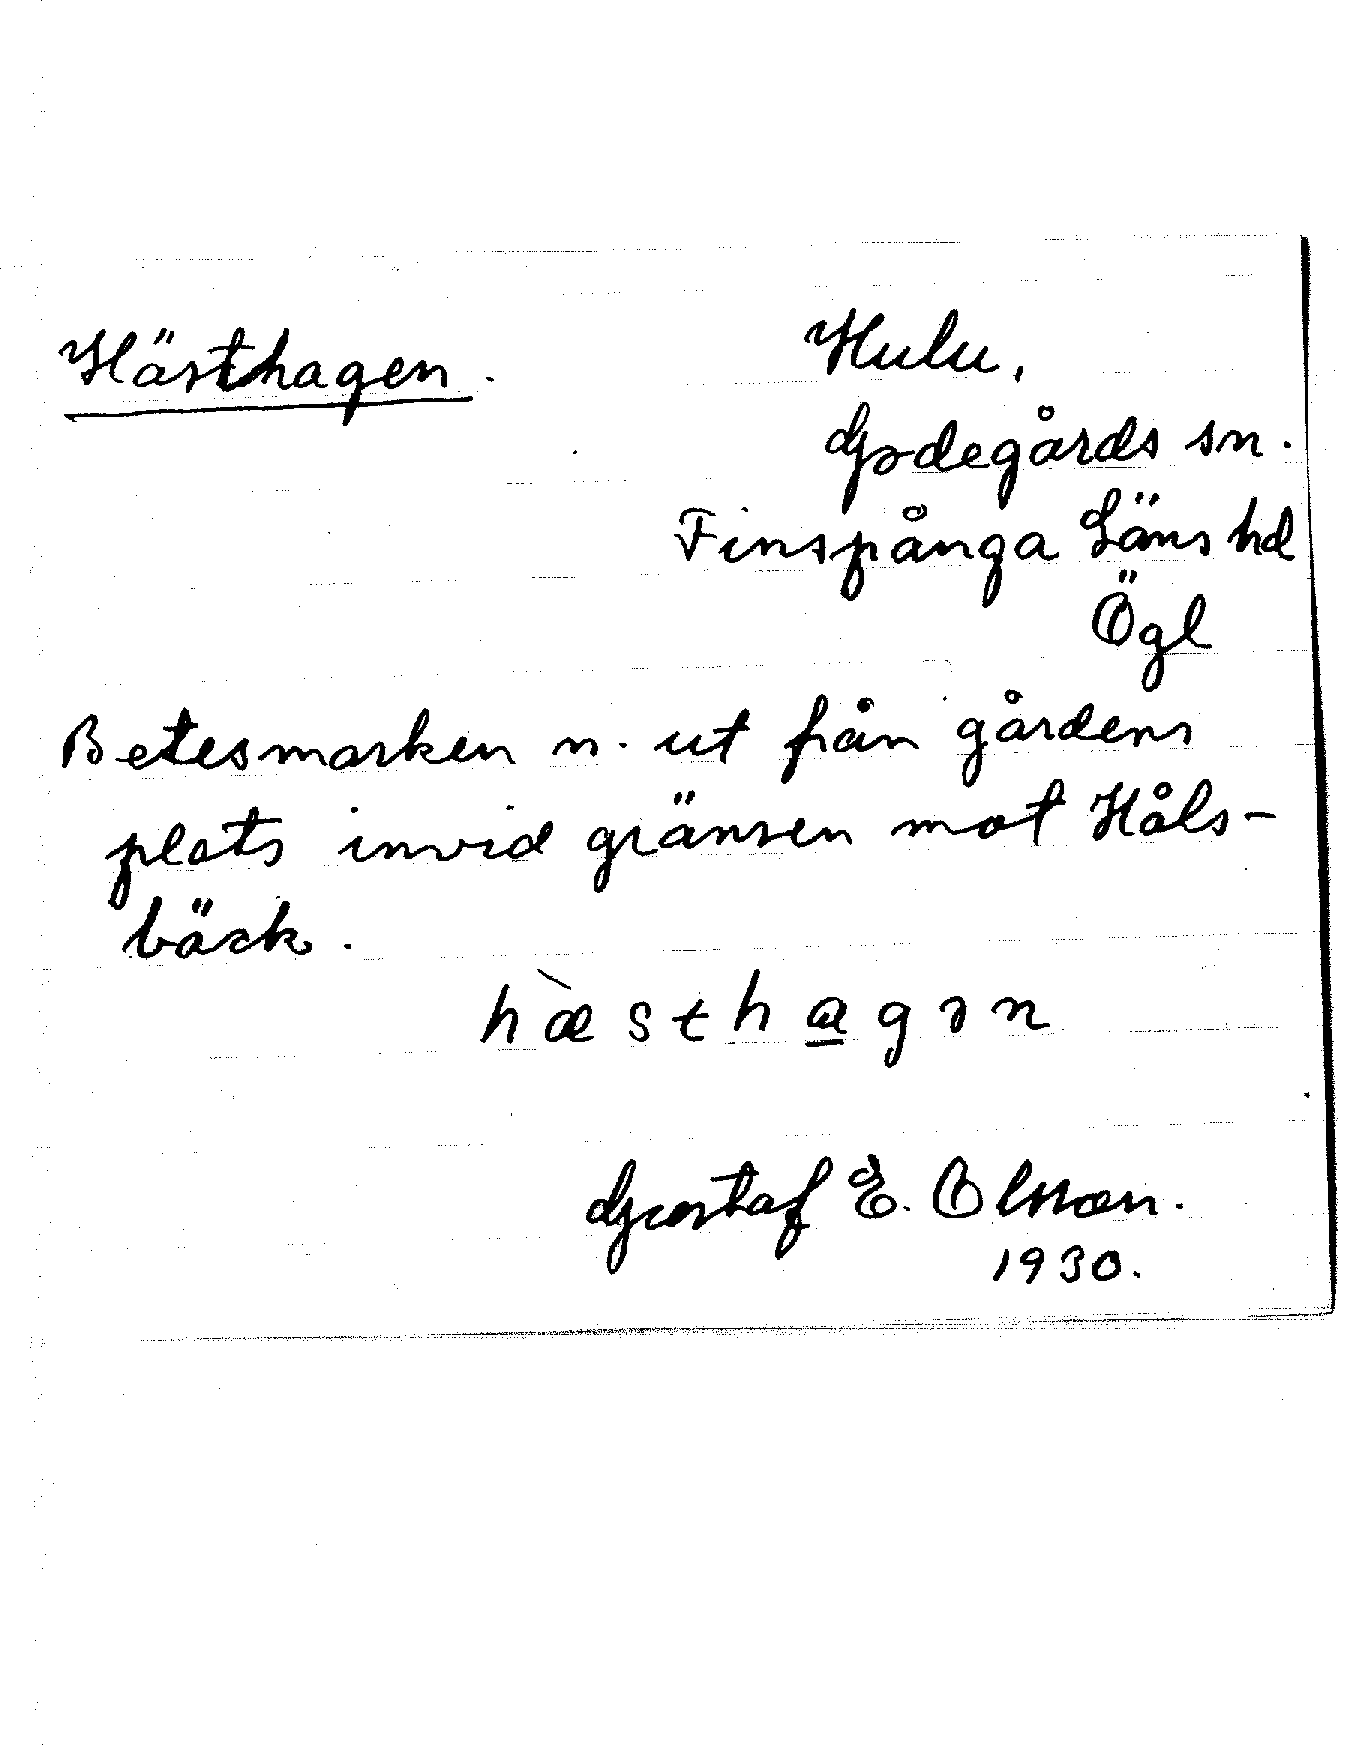 Hästhagen.
Hulu,
Godegårds sn.
Finspånga Läns hd
Ögl
Betesmarken n. ut från gårdens
plats invid gränsen mot Håls-
bäck.
hæ̀sthagən
Gustaf E. Olsson.
1930.